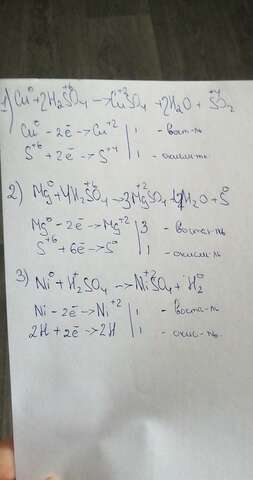 1) Cu⁰ + 2H₂S⁺⁶O₄ → Cu⁺²SO₄ + 2H₂O + S⁺⁴O₂
Cu⁰ - 2ē → Cu⁺² | 1 - восст-ль
S⁺⁶ + 2ē → S⁺⁴ | 1 - окислит-ль
2) Mg⁰ + 4H₂S⁺⁶O₄ → 3Mg⁺²SO₄ + 4H₂O + S⁰
Mg⁰ - 2ē → Mg⁺² | 3 - восстан-ль
S⁺⁶ + 6ē → S⁰ | 1 - окислит-ль
3) Ni⁰ + H₂⁺SO₄ → Ni⁺²SO₄ + H₂⁰
Ni - 2ē → Ni⁺² | 1 - восста-ль
2H + 2ē → 2H | 1 - окис-ль